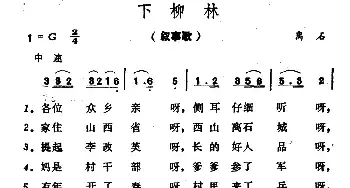 下柳林
1=G 2/4 （叙事歌） 离石
中速
3532 3216 1·6 5 1·2 356 1·6 5
1。各位 众乡 亲 呀，侧耳 仔细 听 呀，
2。家住 山西 省 呀，西山 离石 城 呀，
3。提起 李改 英 呀，长的 好人 品 呀，
4。妈是 村干 部 呀，爹爹 参了 军 呀，
5。有年 开了 春 呀，村里 来了 兵 呀，